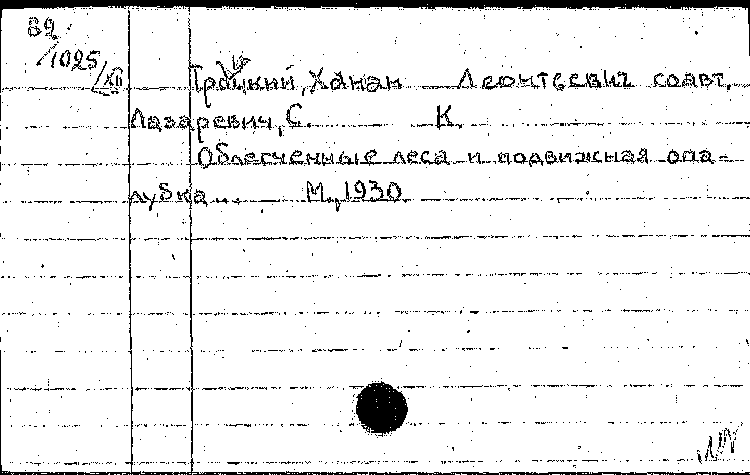 89
/1025
/ХП
Троцкий, Ханан Леонтьевич соавт.
Лазаревич, С. К.
Облегченные леса и подвижная опа-
лубка... М., 1930